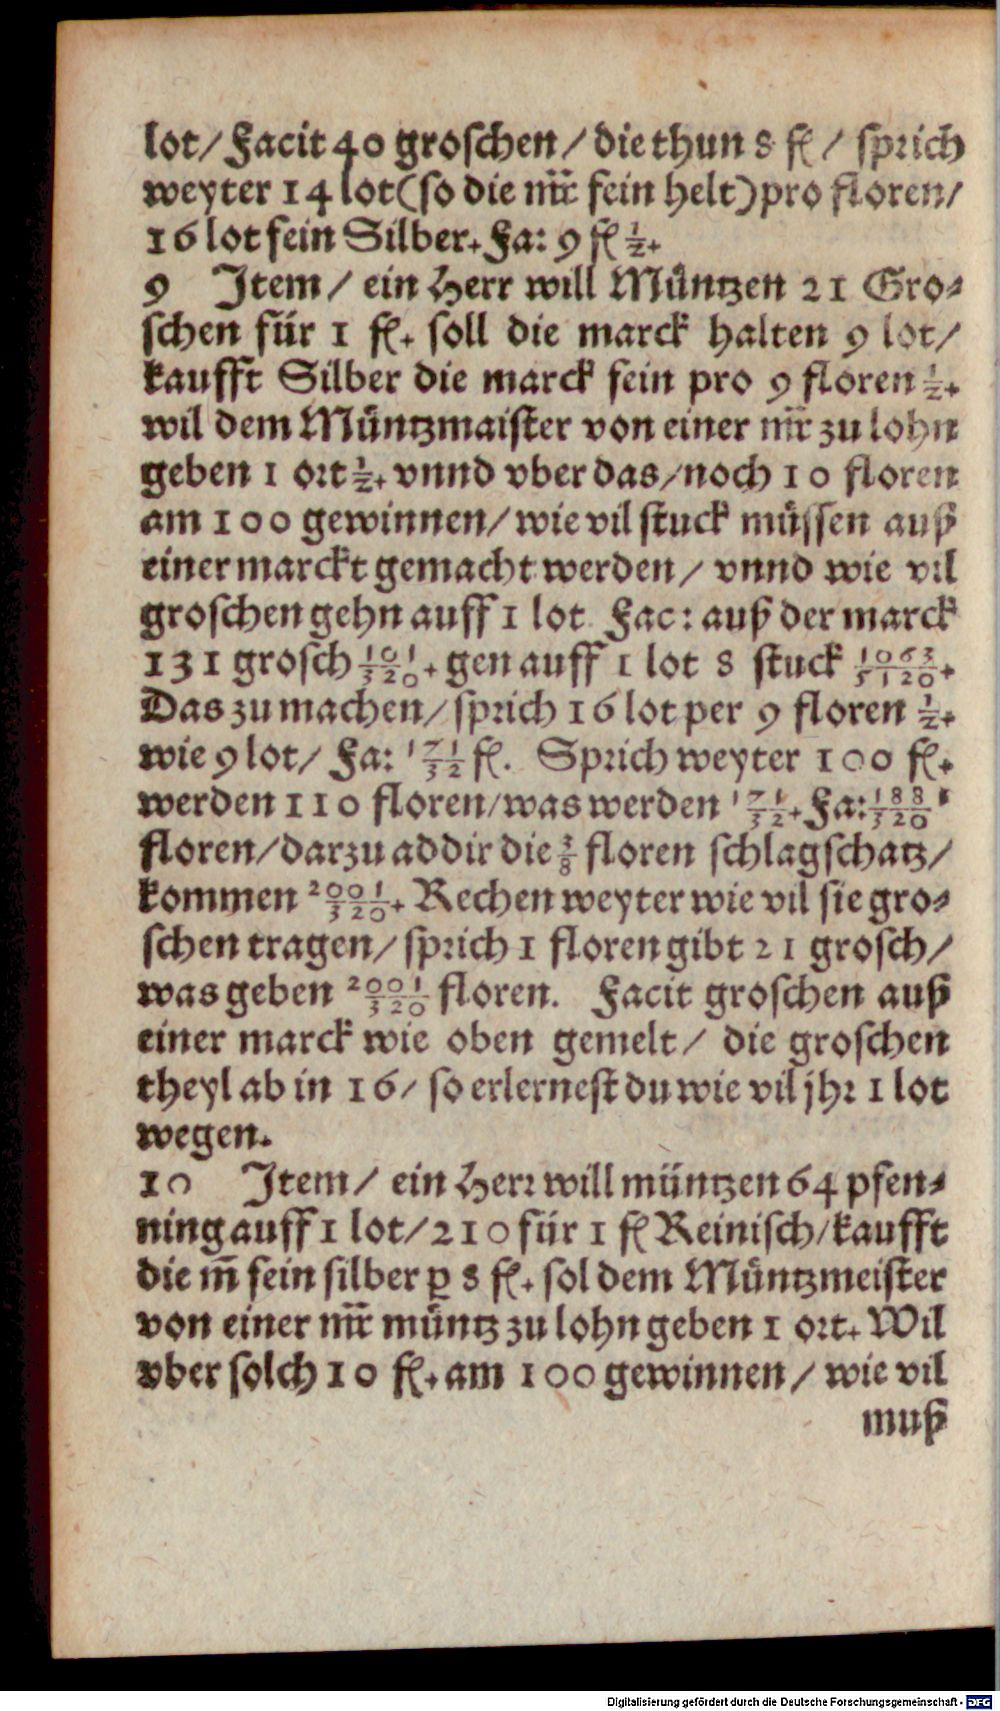 lot/ Facit 40 groschen/ die thun 8 fl/ sprich
weyter 14 lot (so die mr̄ fein helt) pro floren/
16 lot fein Silber. Fa: 9 fl ½.
9 Item/ ein Herr will Müntzen 21 Gro⸗
schen für 1 fl. soll die marck halten 9 lot/
kaufft Silber die marck fein pro 9 floren ½.
wil dem Müntzmaister von einer mr̄ zu lohn
geben 1 ort ½. vnnd vber das/ noch 10 floren
am 100 gewinnen/ wie vil stuck müssen auß
einer marckt gemacht werden/ vnnd wie vil
groschen gehn auff 1 lot. Fac: auß der marck
131 grosch 101/320. gen auff 1 lot 8 stuck 1063/5120.
Das zu machen/ sprich 16 lot per 9 floren ½.
wie 9 lot/ Fa: 171/32 fl. Sprich weyter 100 fl.
werden 110 floren/ was werden 171/32. Fa: 1881/320
floren/ darzu addir die 3/8 floren schlagschatz/
kommen 2001/320. Rechen weyter wie vil sie gro⸗
schen tragen/ sprich 1 floren gibt 21 grosch/
was geben 2001/320 floren. Facit groschen auß
einer marck wie oben gemelt/ die groschen
theyl ab in 16/ so erlernest du wie vil jhr 1 lot
wegen.
10 Item/ ein Herr will müntzen 64 pfen⸗
ning auff 1 lot/ 210 für 1 fl Reinisch/ kaufft
die m̄ fein silber ꝑ 8 fl. sol dem Müntzmeister
von einer mr̄ müntz zu lohn geben 1 ort. Wil
vber solch 10 fl. am 100 gewinnen/ wie vil
muß
Digitalisierung gefördert durch die Deutsche Forschungsgemeinschaft - DFG